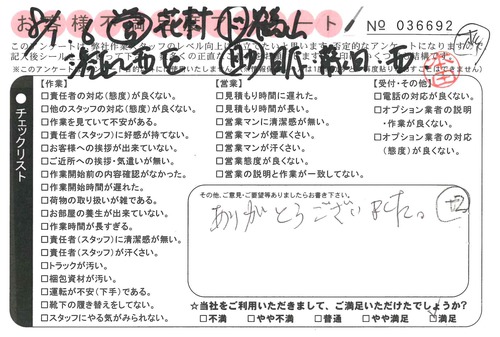 お客様不満足アンケート No 036692
【作業】
□責任者の対応(態度)が良くない。
□他のスタッフの対応(態度)が良くない。
□作業を見ていて不安がある。
□責任者(スタッフ)に好感が持てない。
□お客様への挨拶が出来ていない。
□ご近所への挨拶・気遣いが無い。
□作業開始前の内容確認がなかった。
□作業開始時間が遅れた。
□荷物の取り扱いが雑である。
□お部屋の養生が出来ていない。
□作業時間が長すぎる。
□責任者(スタッフ)に清潔感が無い。
□責任者(スタッフ)が汗くさい。
□トラックが汚い。
□梱包資材が汚い。
□運転が不安(下手)である。
□靴下の履き替えをしてない。
□スタッフにやる気がみられない。
【営業】
□見積もり時間に遅れた。
□見積もり時間が長い。
□営業マンに清潔感が無い。
□営業マンが煙草くさい。
□営業マンが汗くさい。
□営業態度が良くない。
□営業の説明と作業が一致してない。
【受付・その他】
□電話の対応が良くない。
□オプション業者の説明
・作業が良くない。
□オプション業者の対応
(態度)が良くない。
チェックリスト
その他、ご意見・ご要望等ありましたらお書き下さい。
ありがとうございました。
☆当社をご利用いただきまして、ご満足いただけたでしょうか?
□不満 □やや不満 □普通 □やや満足 □満足